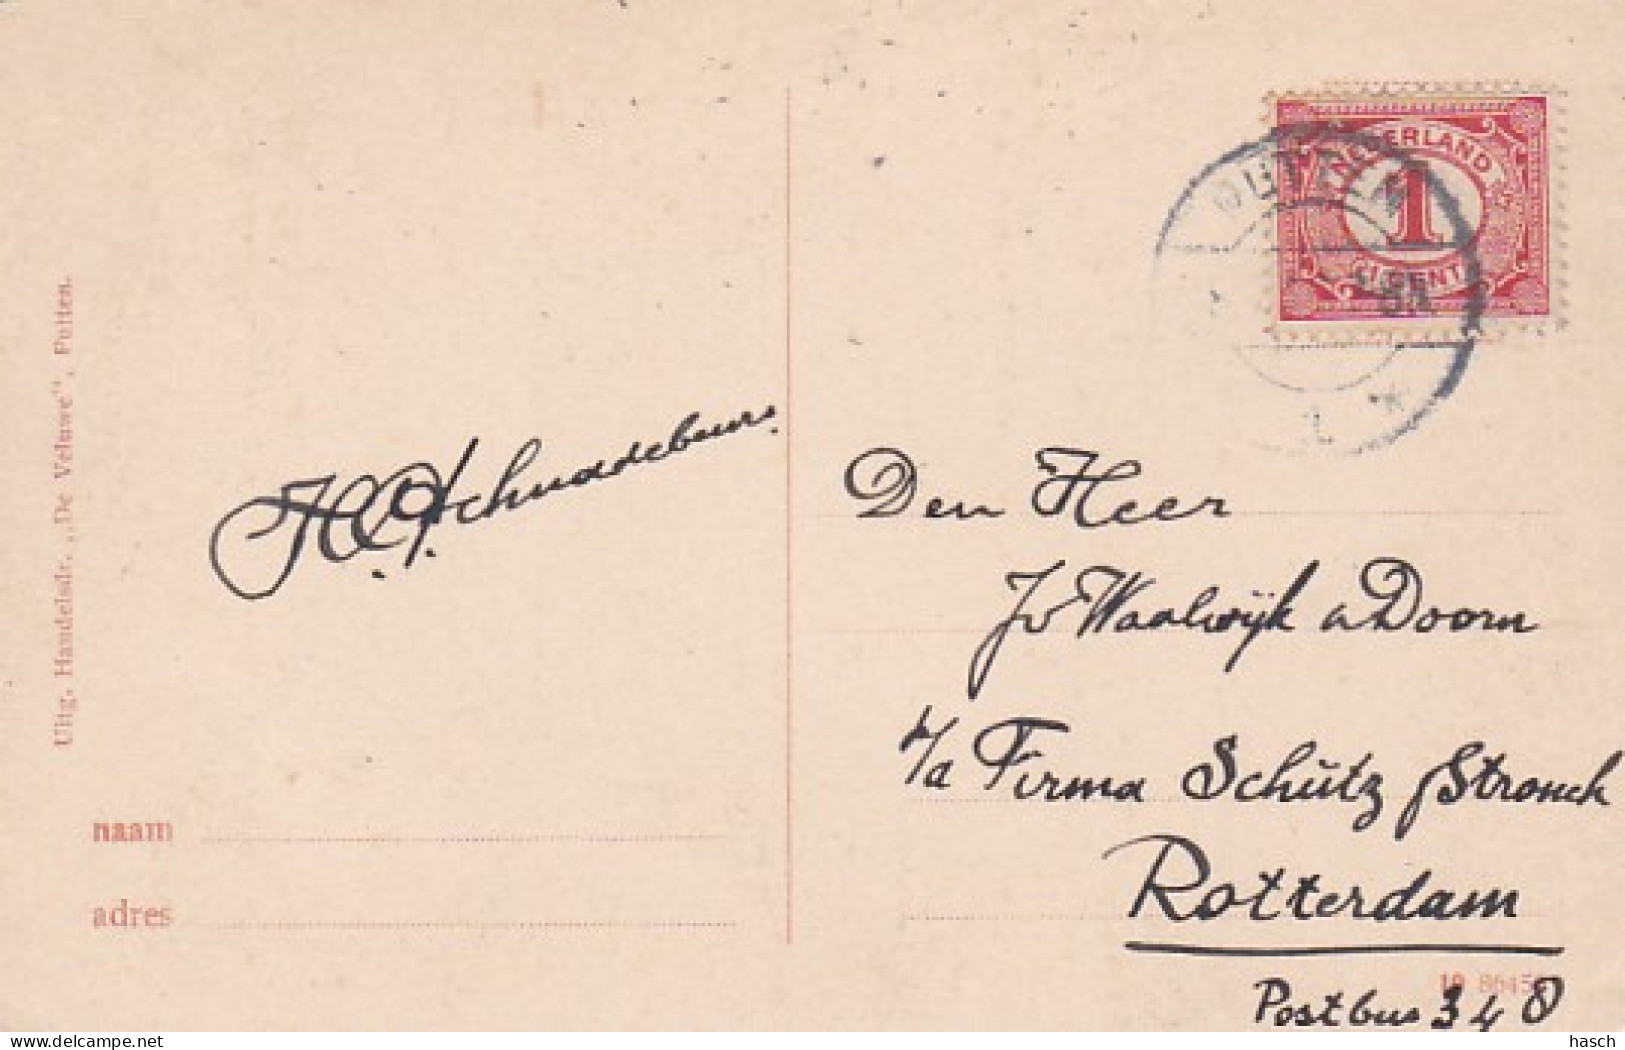 Uitg. Handelsdr. „De Veluwe", Putten.
NEDERLAND
1
CENT
PUTTEN
Den Heer
Jv Waalwijk v Doorn
p/a Firma Schütz
Rotterdam
Postbus 348
naam
adres
hasch
delcampe.net